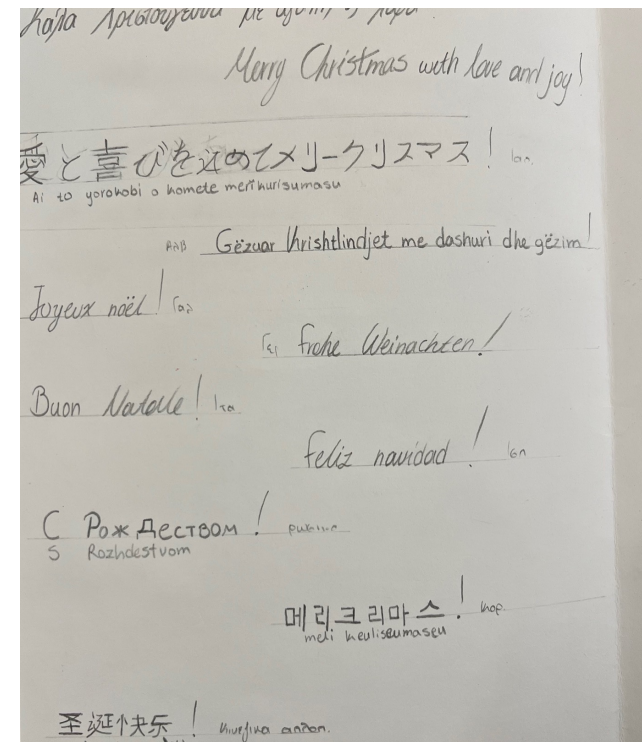 Καλα Χριστουγεννα με αγαπη
Merry Christmas with love and joy!
愛と喜びを込めてメリークリスマス! Ιαπ.
Ai to yorokobi o komete merīkurisumasu
Αλβ Gëzuar Krishtlindjet me dashuri dhe gëzim!
Joyeux noël! Γαλ
Γερ frohe Weinachten!
Buon Natale! Ιτα
feliz navidad! Ισπ
С Рождеством!
S Rozhdestvom
메리크리마스! κορ.
meli keuliseumaseu
圣诞快乐! κινεζικα απλοπ.